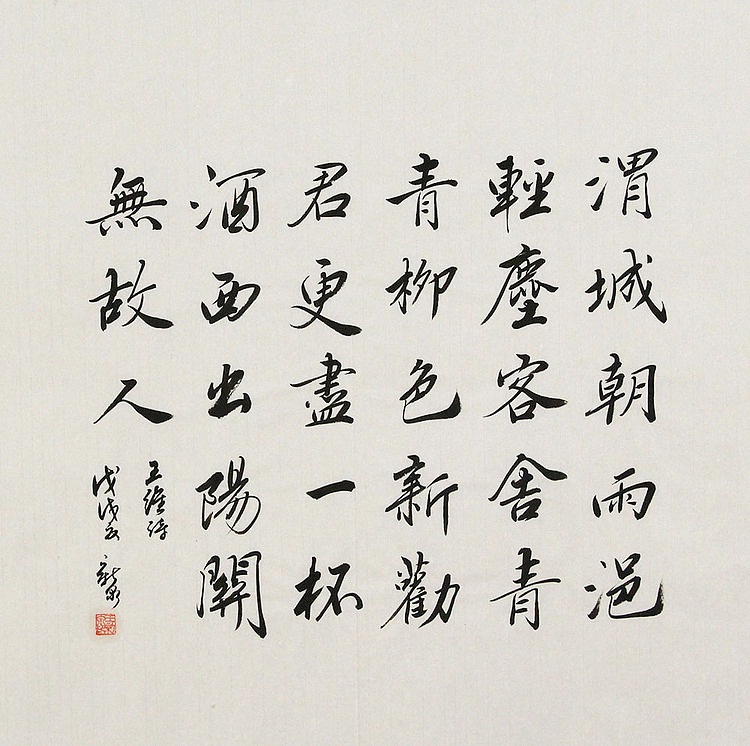 渭城朝雨浥
輕塵客舍青
青柳色新勸
君更盡一杯
酒西出陽關
無故人
王維詩
戊戌夏